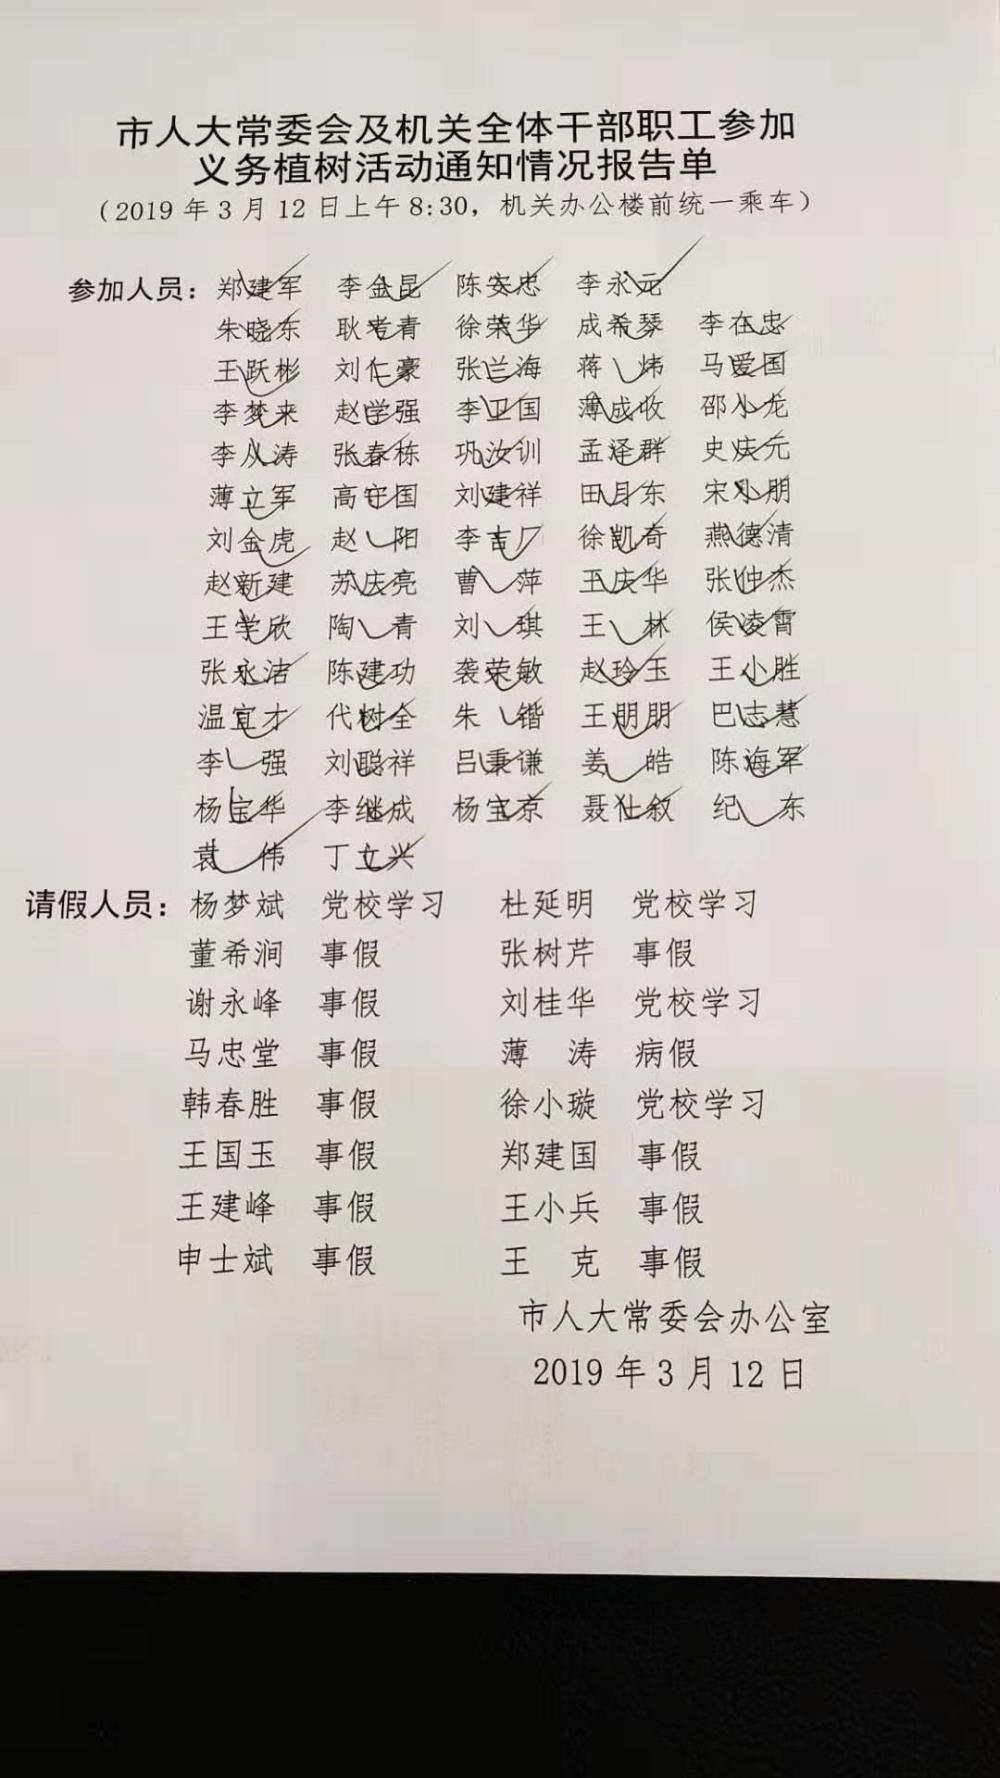 市人大常委会及机关全体干部职工参加
义务植树活动通知情况报告单
（2019 年 3 月 12 日上午 8:30，机关办公楼前统一乘车）
参加人员：郑建军 李金昆 陈安忠 李永元
朱晓东 耿考青 徐荣华 成希琴 李在忠
王跃彬 刘仁豪 张兰海 蒋 炜 马爱国
李梦来 赵学强 李卫国 薄成收 邵小龙
李从涛 张春栋 巩汝训 孟泽群 史庆元
薄立军 高守国 刘建祥 田月东 宋小朋
刘金虎 赵 阳 李吉厂 徐凯奇 燕德清
赵新建 苏庆亮 曹 萍 王庆华 张仲杰
王学欣 陶 青 刘 琪 王 林 侯凌霄
张永洁 陈建功 袭荣敏 赵玲玉 王小胜
温宜才 代树全 朱 锴 王朋朋 巴志慧
李 强 刘聪祥 吕秉谦 姜 皓 陈海军
杨宝华 李继成 杨宝京 聂仕叙 纪 东
袁 伟 丁立兴
请假人员：杨梦斌 党校学习 杜延明 党校学习
董希涧 事假 张树芹 事假
谢永峰 事假 刘桂华 党校学习
马忠堂 事假 薄 涛 病假
韩春胜 事假 徐小璇 党校学习
王国玉 事假 郑建国 事假
王建峰 事假 王小兵 事假
申士斌 事假 王 克 事假
市人大常委会办公室
2019 年 3 月 12 日